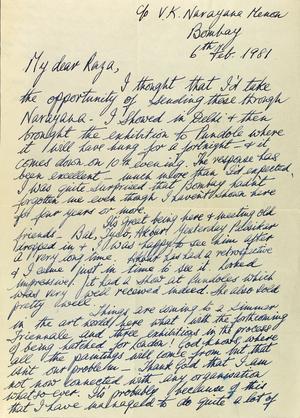 c/o V.K. Narayana Menon
Bombay
6th Feb. 1981
My dear Raza,
I thought that I'd take
the opportunity of sending these through
Narayana - I showed in Delhi & then
brought the exhibition to Pundole where
it will have hung for a fortnight - & it
comes down on 10th evening. The response has
been excellent - much more than I'd expected.
I was quite surprised that Bombay hadn't
forgotten me even though I haven't shown here
for four years or more.
Its great being here & meeting old
friends - Bal, Tyeb, Akbar. Yesterday Palsikar
dropped in & I was happy to see him after
a very long time. has had a retrospective
& I came just in time to see it. Looked
impressive. It had a show at Pundoles which
was very well received indeed. She also sold
pretty well.
Things are coming to a simmer
in the art world here what with the forthcoming
Triennale and three exhibitions in the process
of being hatched for London! God knows where
all the paintings will come from but that
isn't our problem - Thank God that I am
not now connected with any organisation
what-so-ever. Its probably because of this
that I have managed to do quite a lot of